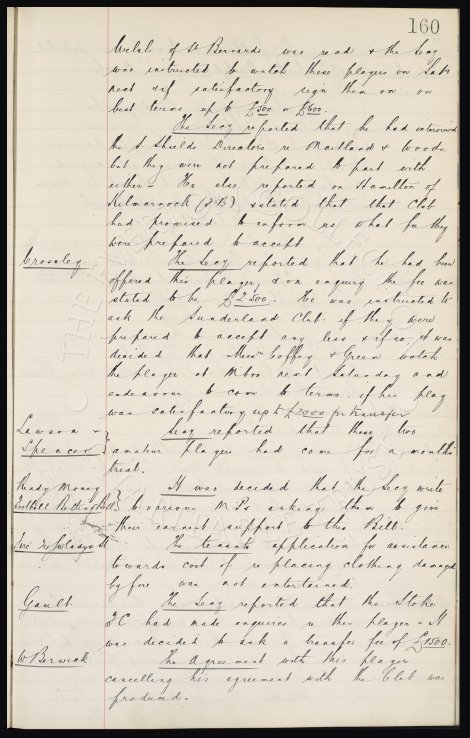 160
Welsh of St Bernards was read & the Secy
was instructed to watch these players on Satr
next & if satisfactory sign them on on
best terms up to £500 or £600.
The Secy reported that he had interviewed
the S Shields Directors re Maitland & Woods
but they were not prepared to part with
either - He also reported on Hamilton of
Kilmarnock & stated that that Club
had promised to inform us what fee they
were prepared to accept
Crossley
The Secy reported that he had been
offered this player & on enquiry the fee was
stated to be £2500. He was instructed to
ask the Sunderland Club if they were
prepared to accept any less & if so, it was
decided that Messrs Coffey & Green watch
the player at Mbro next Saturday and
endeavour to come to terms if his play
was satisfactory up to £2000 for transfer
Lawson &
Spencer
Secy reported that these two
amateur players had come for a month's
trial.
Ready Money
Football Betting Bill
It was decided that the Secy write
to various M Ps asking them to give
their earnest support to this Bill.
The tenants application for assistance
towards cost of re placing clothing damaged
by fire was not entertained.
Gault
The Secy reported that the Stoke
FC had made enquiries re this player - It
was decided to ask a transfer fee of £1500.
W Berwick
The Agreement with this player
cancelling his agreement with the Club was
produced.